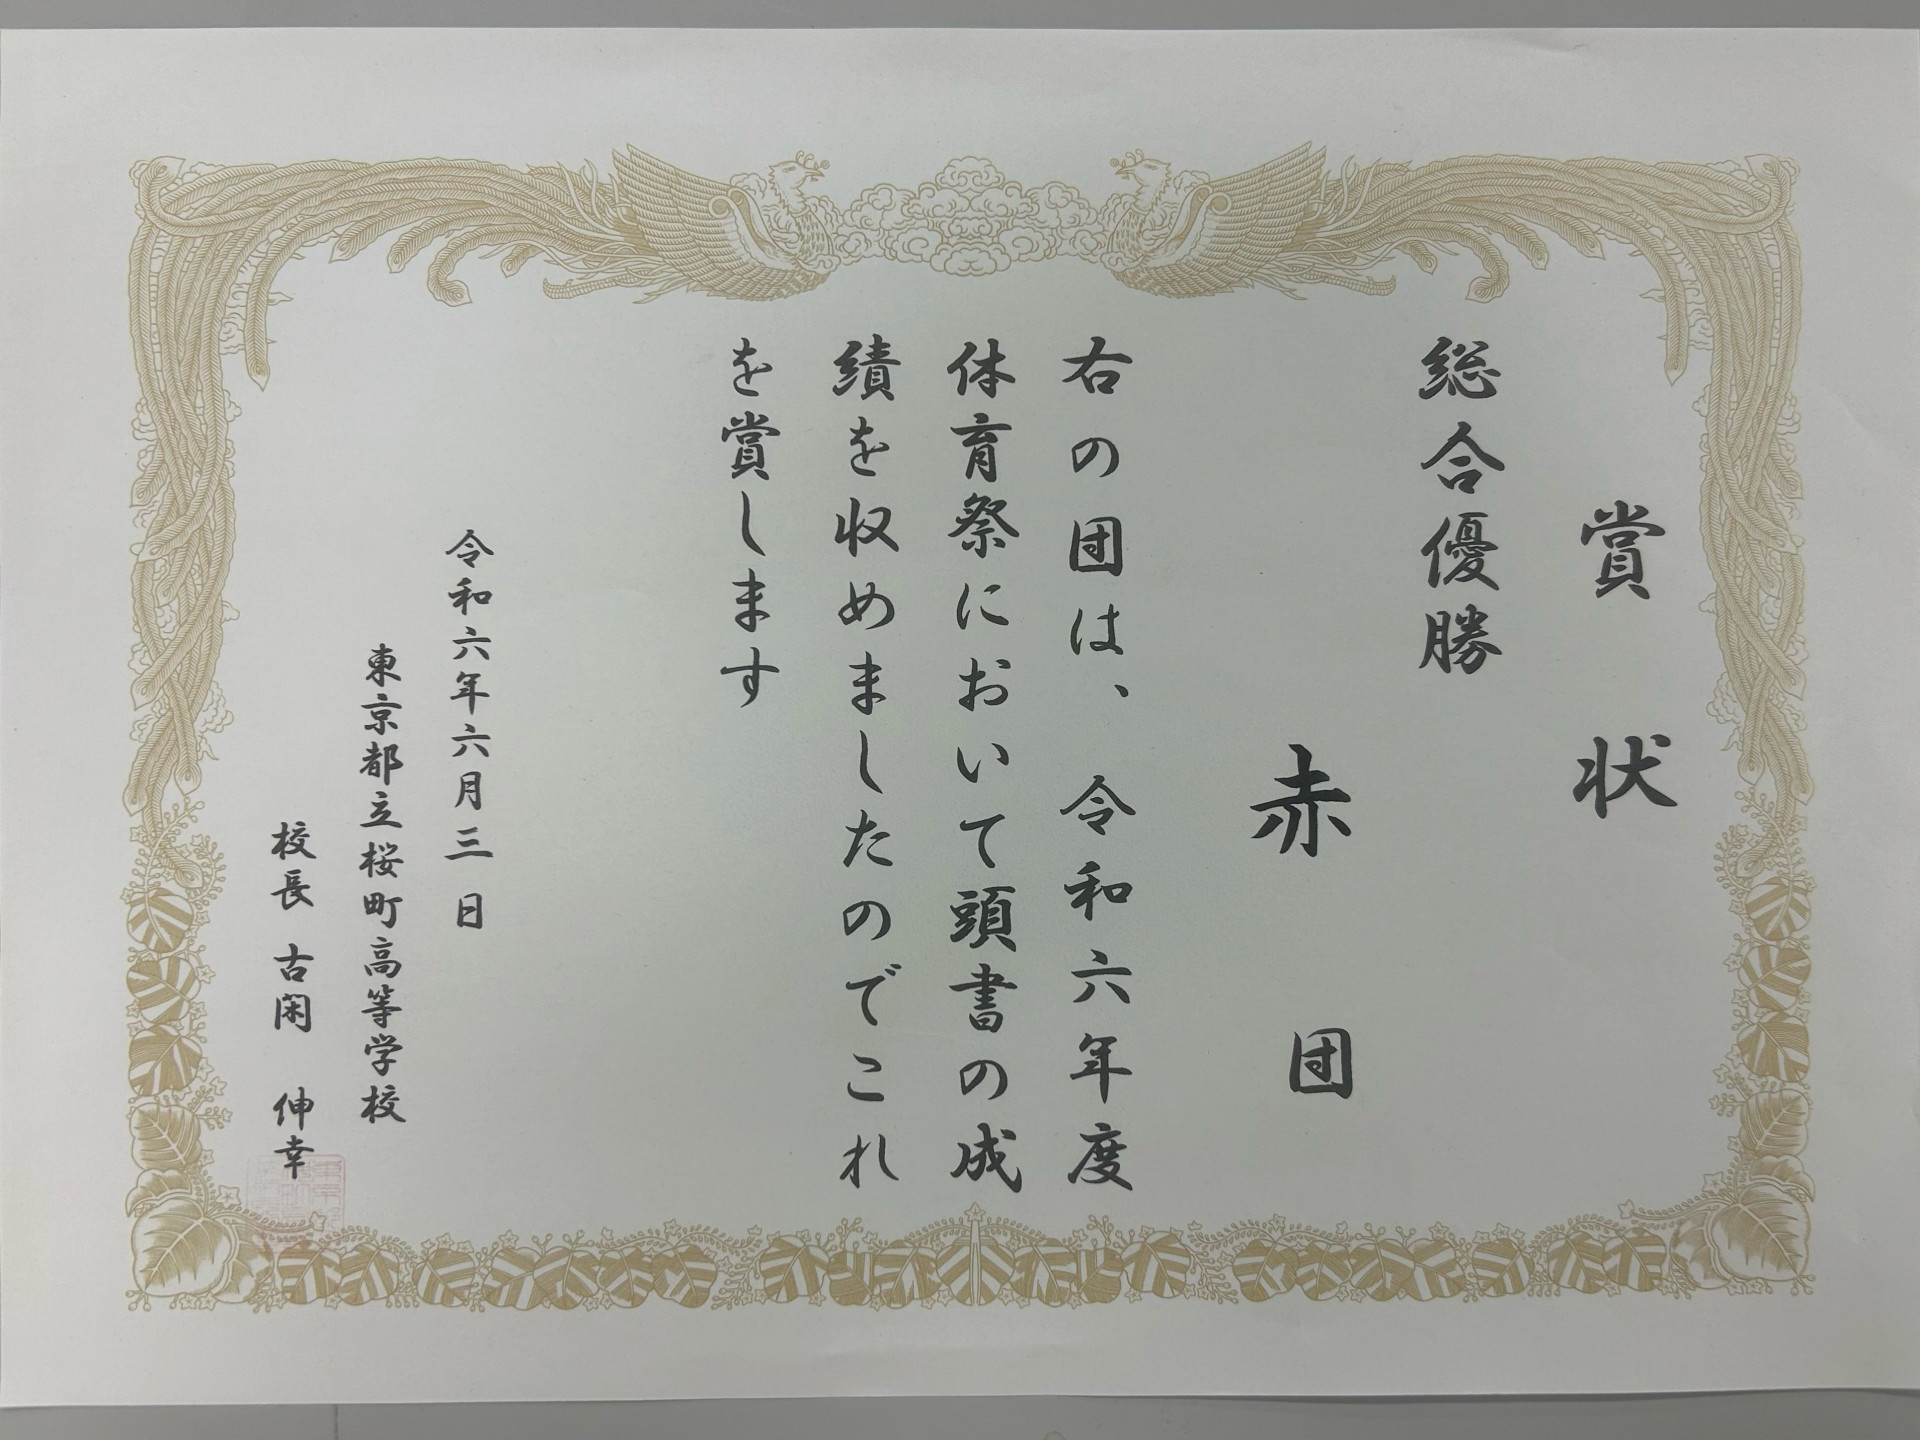 賞状
総合優勝
赤団
右の団は、令和六年度
体育祭において頭書の成
績を収めましたのでこれ
を賞します
令和六年六月三日
東京都立桜町高等学校
校長 古閑 伸幸